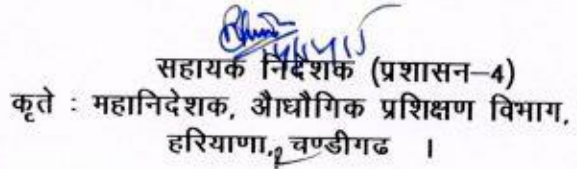 सहायक निदेशक (प्रशासन–4)
कृते : महानिदेशक, औधौगिक प्रशिक्षण विभाग,
हरियाणा, चण्डीगढ ।